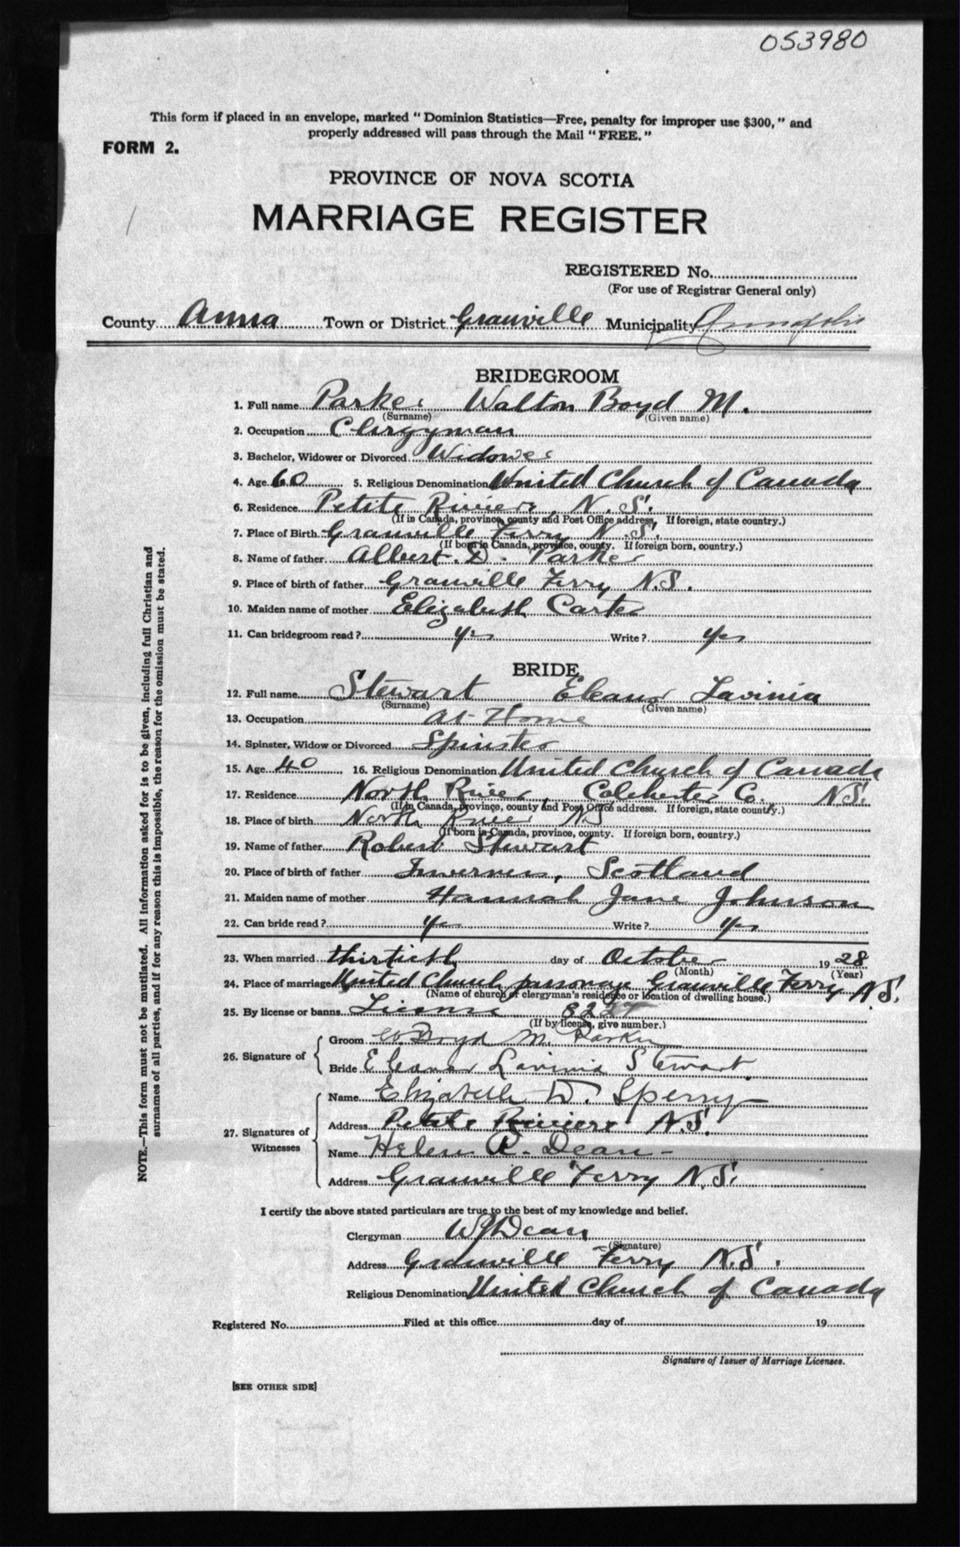 053980
This form if placed in an envelope, marked "Dominion Statistics—Free, penalty for improper use $300," and
properly addressed will pass through the Mail "FREE."
FORM 2.
PROVINCE OF NOVA SCOTIA
MARRIAGE REGISTER
REGISTERED No.
(For use of Registrar General only)
County Anna Town or District Granville Municipality Annapolis
BRIDEGROOM
1. Full name Parker Walton Boyd M.
(Surname) (Given name)
2. Occupation Clergyman
3. Bachelor, Widower or Divorced Widower
4. Age 60 5. Religious Denomination United Church of Canada
6. Residence Petite Riviere, N.S.
(If in Canada, province, county and Post Office address. If foreign, state country.)
7. Place of Birth Granville Ferry N.S.
(If born in Canada, province, county. If foreign born, country.)
8. Name of father Albert. D. Parker
9. Place of birth of father Granville Ferry N.S.
10. Maiden name of mother Elizabeth Carter
11. Can bridegroom read? Yes Write? Yes
BRIDE
12. Full name Stewart Eleanor Lavinia
(Surname) (Given name)
13. Occupation At Home
14. Spinster, Widow or Divorced Spinster
15. Age 40 16. Religious Denomination United Church of Canada
17. Residence North River, Colchester Co. N.S.
(If in Canada, province, county and Post Office address. If foreign, state country.)
18. Place of birth North River NS
(If born in Canada, province, county. If foreign born, country.)
19. Name of father Robert Stewart
20. Place of birth of father Inverness, Scotland
21. Maiden name of mother Hannah Jane Johnson
22. Can bride read? Yes Write? Yes
23. When married thirtieth day of October 1928
(Month) (Year)
24. Place of marriage United Church parsonage Granville Ferry N.S.
(Name of church or clergyman's residence or location of dwelling house.)
25. By license or banns License
(If by license, give number.)
26. Signature of
Groom W. Boyd M. Parker
Bride Eleanor Lavinia Stewart.
27. Signatures of Witnesses
Name Elizabeth D. Sperry
Address Petite Riviere N.S.
Name Helen R. Dean
Address Granville Ferry N.S.
I certify the above stated particulars are true to the best of my knowledge and belief.
Clergyman WJ Dean
(Signature)
Address Granville Ferry N.S.
Religious Denomination United Church of Canada
Registered No. Filed at this office day of 19
Signature of Issuer of Marriage Licenses.
[SEE OTHER SIDE]
NOTE.—This form must not be mutilated. All information asked for is to be given, including full Christian and
surnames of all parties, and if for any reason this is impossible, the reason for the omission must be stated.